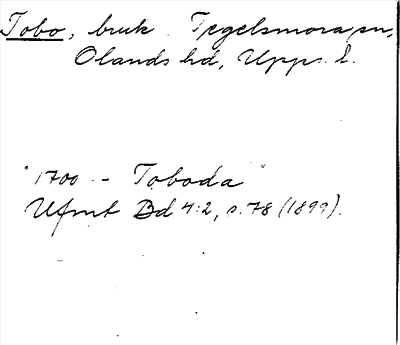 Tobo, bruk. Tegelsmora sn,
Olands hd, Upps. l.
"1700 - Toboda"
Ufmt Bd 4:2, s. 78 (1899).